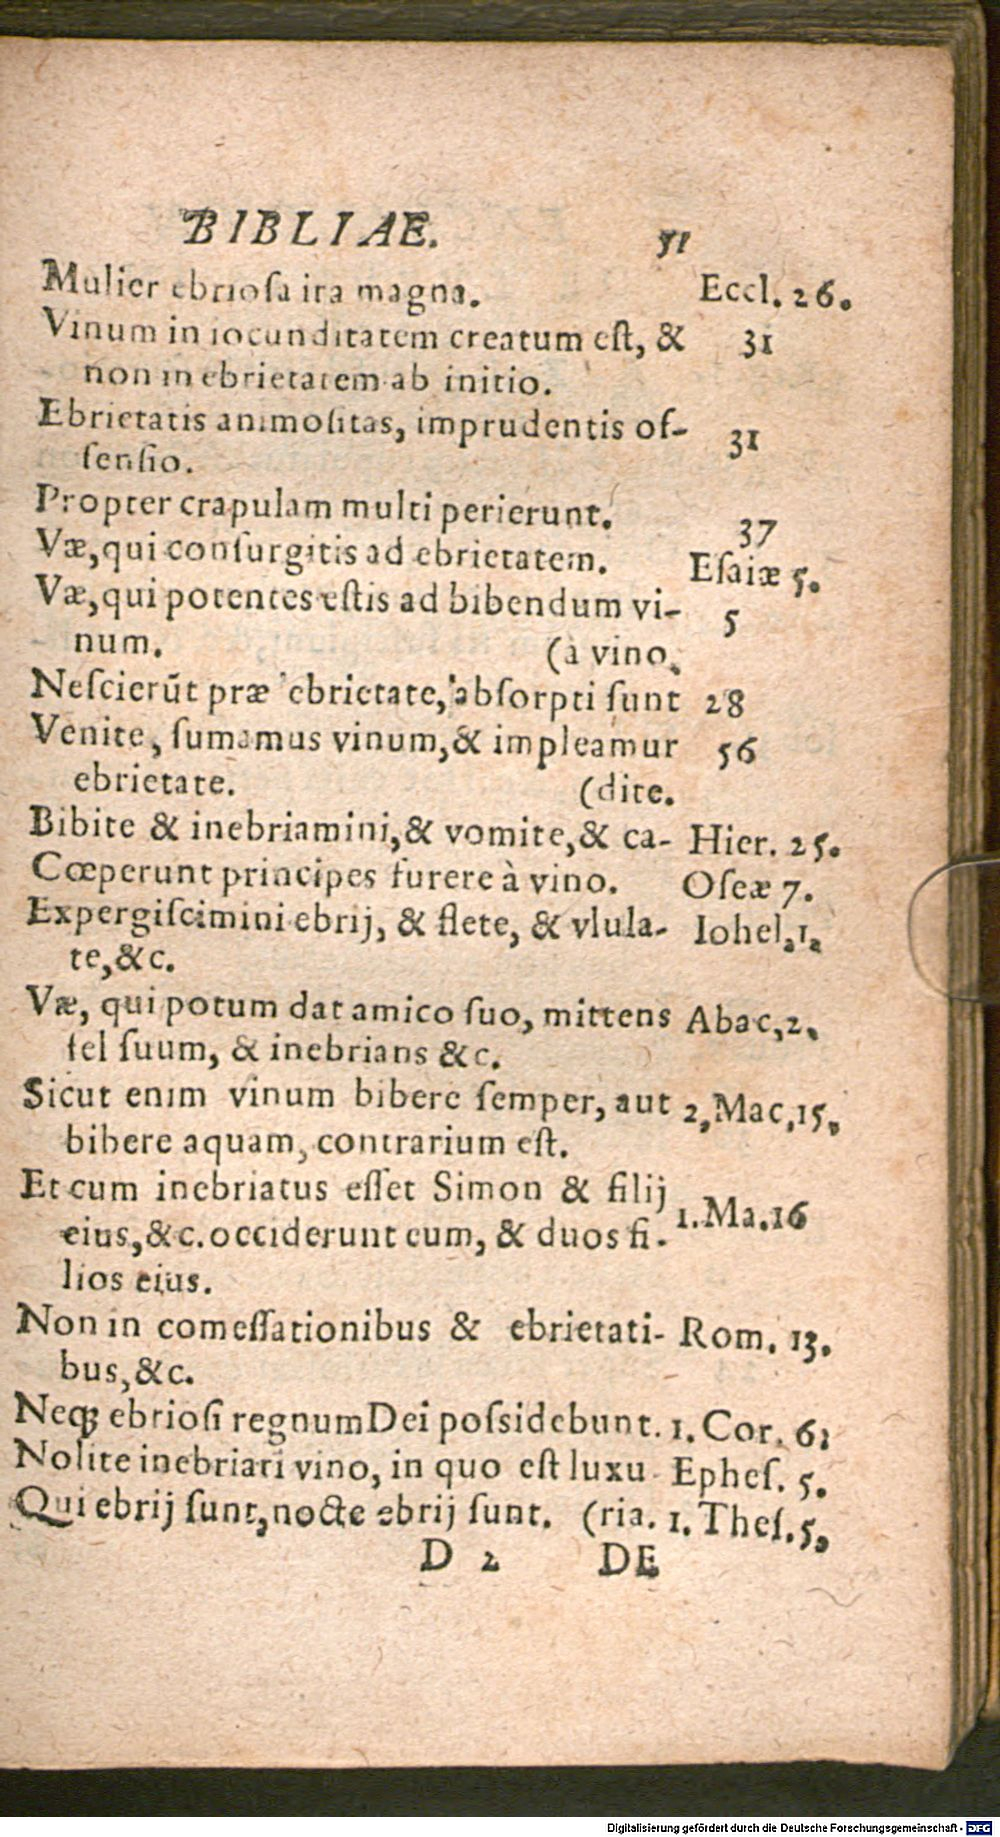 BIBLIAE. 51
Mulier ebriosa ira magna. Eccl. 26.
Vinum in iocunditatem creatum est, & 31
non in ebrietatem ab initio.
Ebrietatis animositas, imprudentis of- 31
fensio.
Propter crapulam multi perierunt. 37
Væ, qui consurgitis ad ebrietatem. Esaiæ 5.
Væ, qui potentes estis ad bibendum vi- 5
num. (à vino.
Nescierūt præ ebrietate, absorpti sunt 28
Venite, sumamus vinum, & impleamur 56
ebrietate. (dite.
Bibite & inebriamini, & vomite, & ca- Hier. 25.
Cœperunt principes furere à vino. Oseæ 7.
Expergiscimini ebrij, & flete, & vlula- Iohel, 1,
te, &c.
Væ, qui potum dat amico suo, mittens Abac, 2,
fel suum, & inebrians &c.
Sicut enim vinum bibere semper, aut 2, Mac, 15,
bibere aquam, contrarium est.
Et cum inebriatus esset Simon & filij 1. Ma. 16
eius, &c. occiderunt eum, & duos fi-
lios eius.
Non in comessationibus & ebrietati- Rom. 13.
bus, &c.
Neqꝫ ebriosi regnum Dei possidebunt. 1. Cor. 6;
Nolite inebriari vino, in quo est luxu Ephes. 5.
Qui ebrij sunt, nocte ebrij sunt. (ria. 1. Thes. 5,
D 2 DE
Digitalisierung gefördert durch die Deutsche Forschungsgemeinschaft - DFG